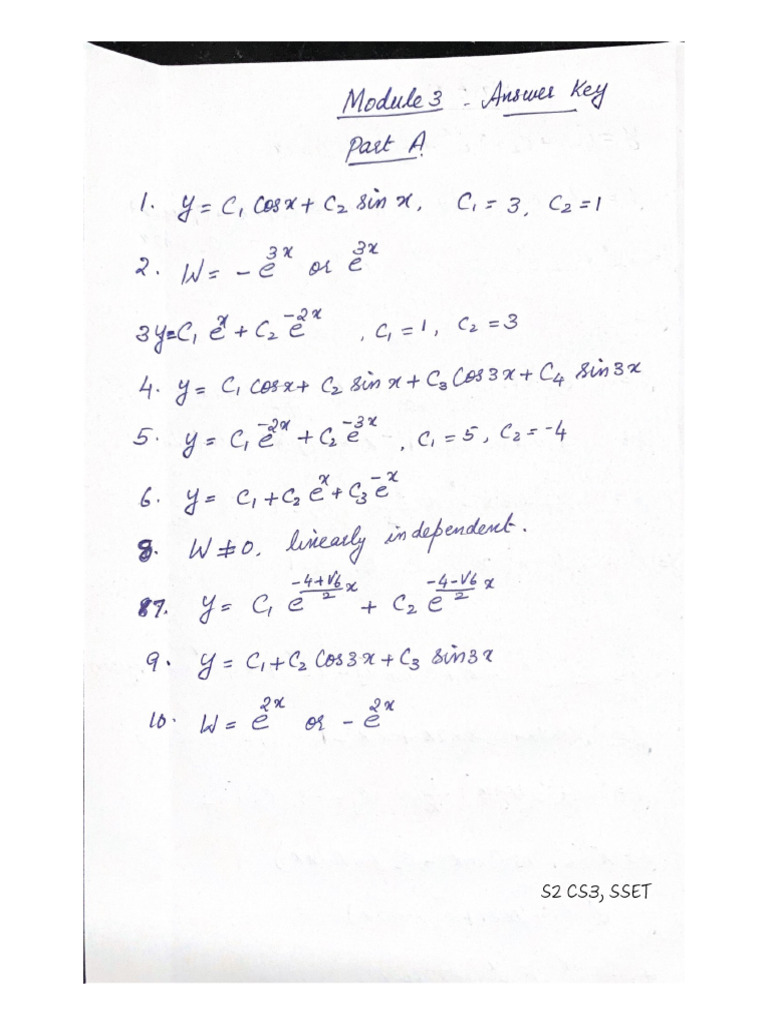 Module 3 - Answer Key
Part A
1. y = C₁ cosx + C₂ sin x, C₁ = 3, C₂ = 1
2. W = -e³ˣ or e³ˣ
3 y = C₁ eˣ + C₂ e⁻²ˣ , C₁ = 1, C₂ = 3
4. y = C₁ cosx + C₂ sin x + C₃ Cos3x + C₄ sin3x
5. y = C₁ e⁻²ˣ + C₂ e⁻³ˣ , C₁ = 5, C₂ = -4
6. y = C₁ + C₂ eˣ + C₃ e⁻ˣ
8. W ≠ 0, linearly independent.
87. y = C₁ e^((-4+√6)/2 x) + C₂ e^((-4-√6)/2 x)
9. y = C₁ + C₂ Cos3x + C₃ sin3x
10. W = e²ˣ or -e²ˣ
S2 CS3, SSET